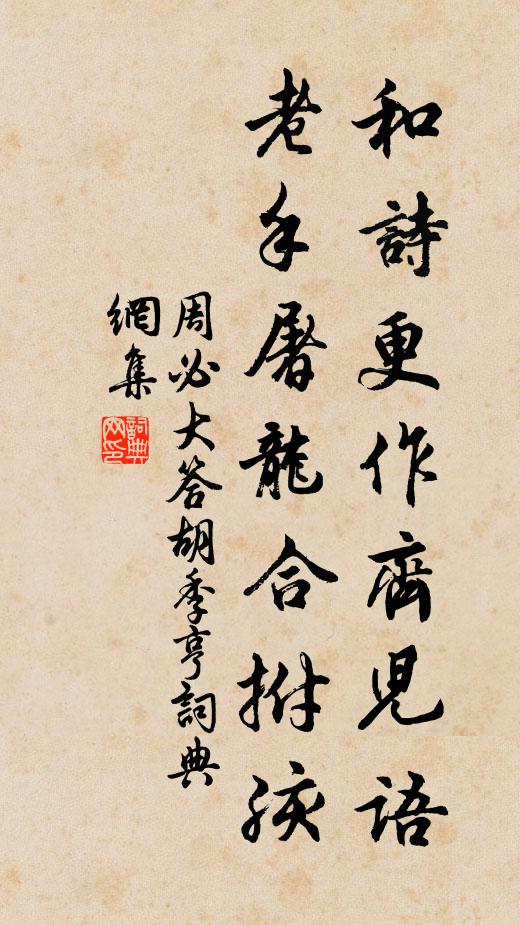 和詩更作齊兒語
老手屠龍合拊髀
周必大答胡季亨詞典
網集
詞典網印